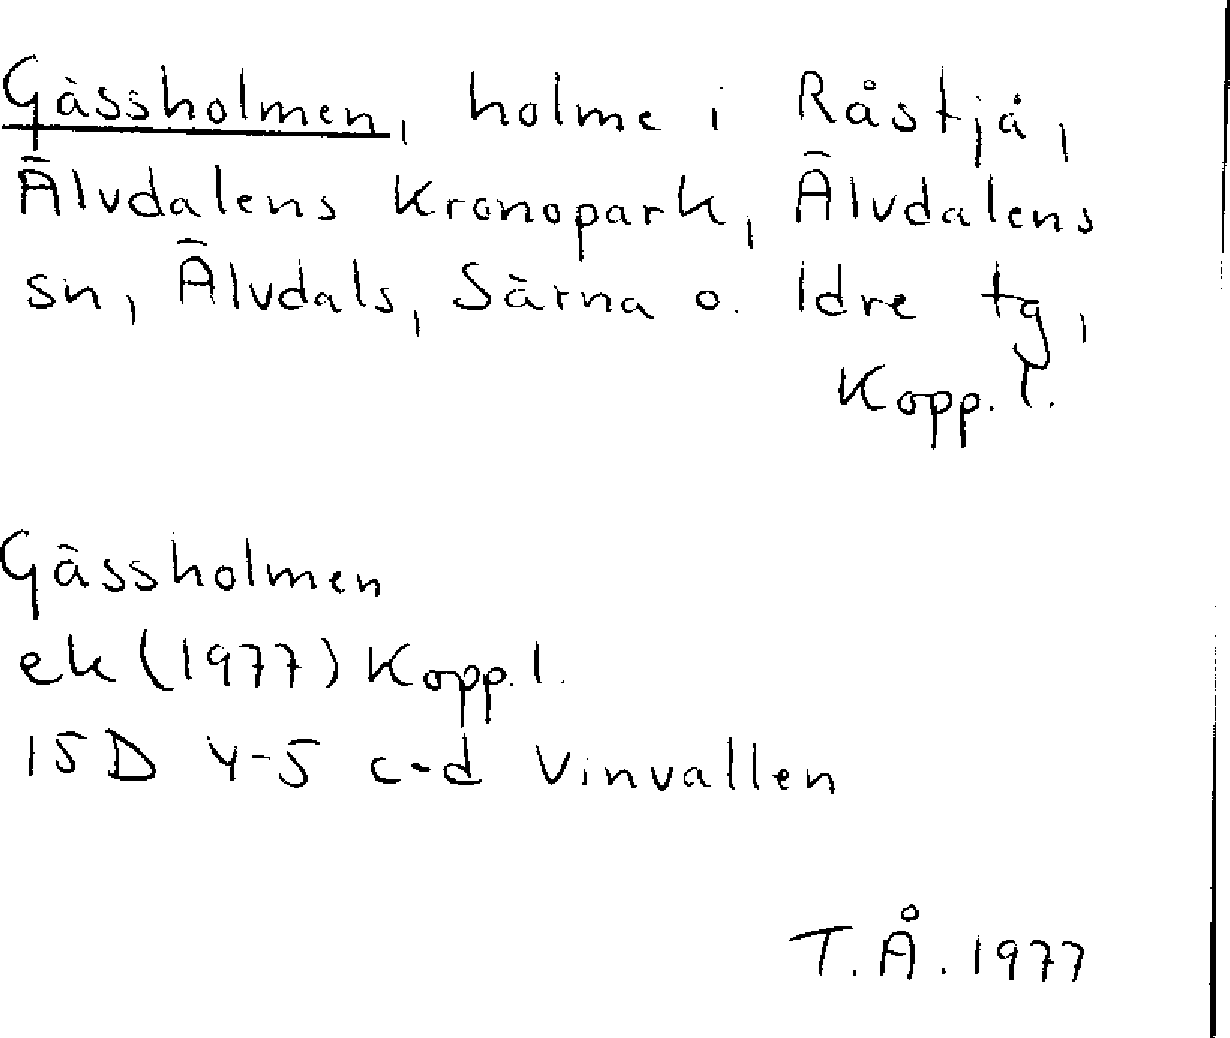 Gässholmen, holme i Råstjå,
Älvdalens Kronopark, Älvdalens
sn, Älvdals, Särna o. Idre tg,
Kopp. l.
Gässholmen
ek (1977) Kopp. l.
15D 4-5 c-d Vinvallen
T.Å. 1977